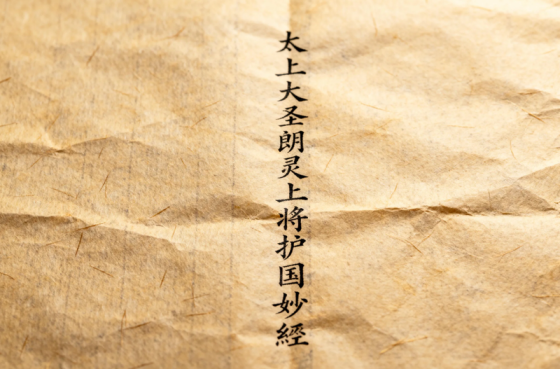 太上大圣朗灵上将护国妙經